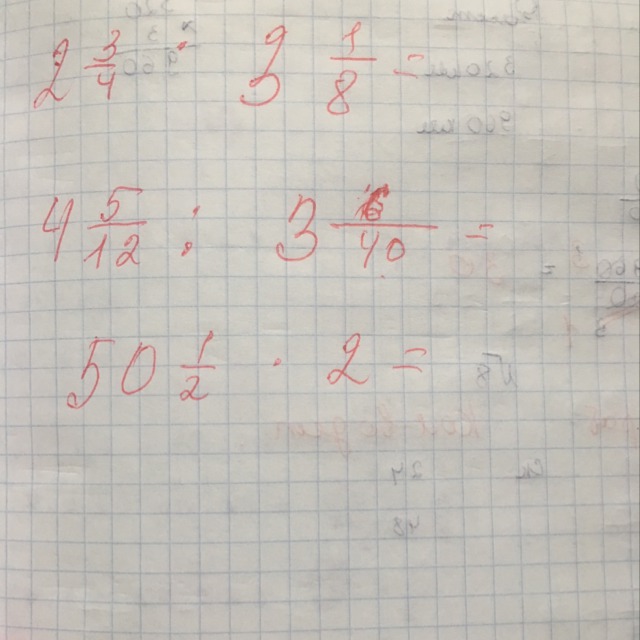 2 3/4 · 3 1/8 =
4 5/12 : 3 6/40 =
50 1/2 · 2 =